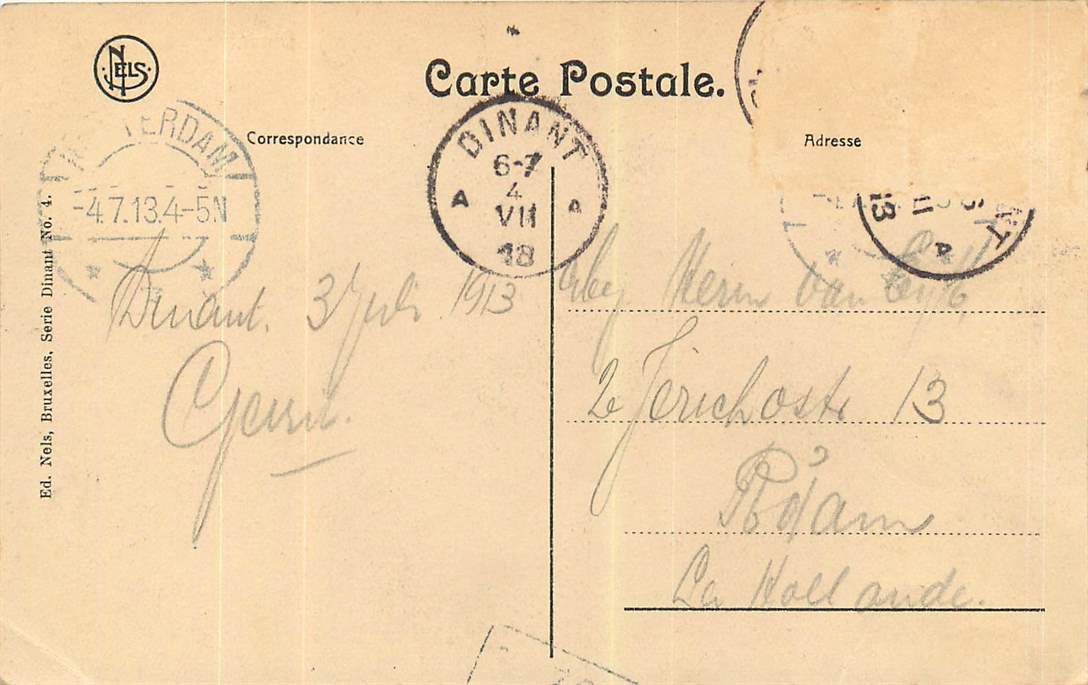 NELS
Carte Postale.
Correspondance
Adresse
TERDAM
-4.7.13.4-5.N
DINANT
6-7
4
VII
A A
13
A
NT
Ed. Nels, Bruxelles, Serie Dinant No. 4.
Dinant. 3 Juli 1913
Herrn van
2e Jerichostr 13
R'dam
La Hollande.